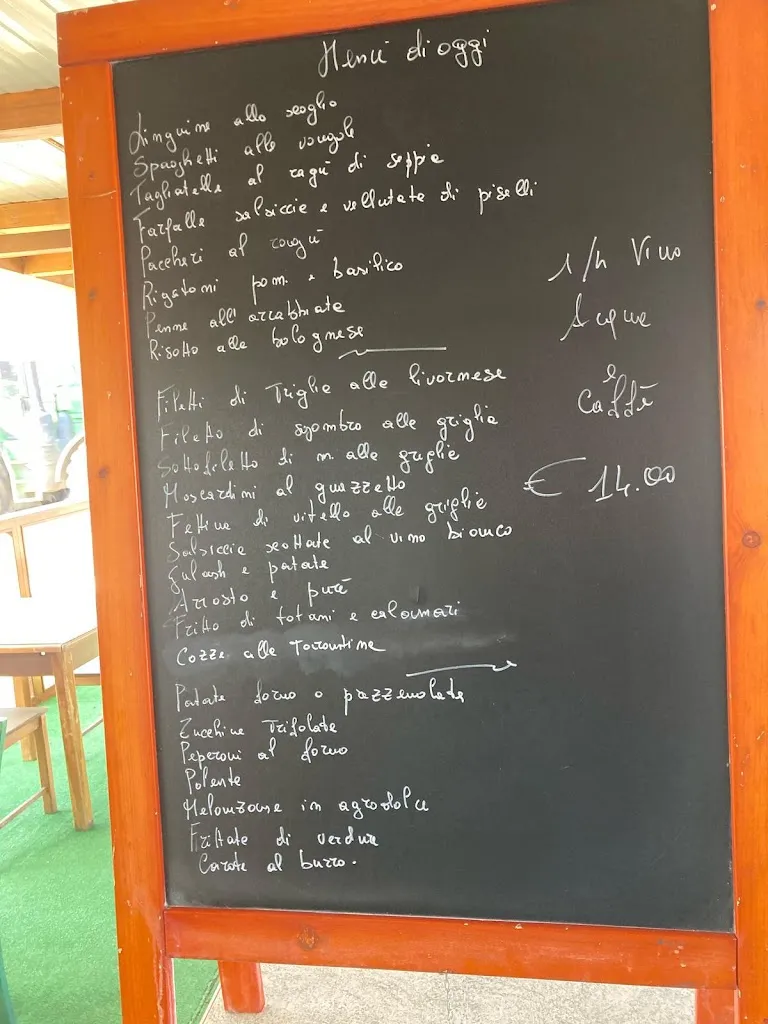 Menù di oggi
Linguine allo scoglio
Spaghetti alle vongole
Tagliatelle al ragù di seppie
Farfalle salsiccie e vellutata di piselli
Paccheri al ragù
Rigatoni pom. e basilico
Penne all' arrabbiata
Risotto alla bolognese
Filetti di Triglie alla livornese
Filetto di sgombro alla griglia
Sottofiletto di m. alla griglia
Moscardini al guazzetto
Fettina di vitello alla griglia
Salsiccie scottate al vino bianco
Gulash e patate
Arrosto e purè
Fritto di totani e calamari
Cozze alla Tarantina
Patate forno o pazzerolate
Zucchine Trifolate
Peperoni al forno
Polenta
Melanzane in agrodolce
Frittata di verdura
Carote al burro.
1/4 Vino
Acqua
e
Caffè
€ 14.00